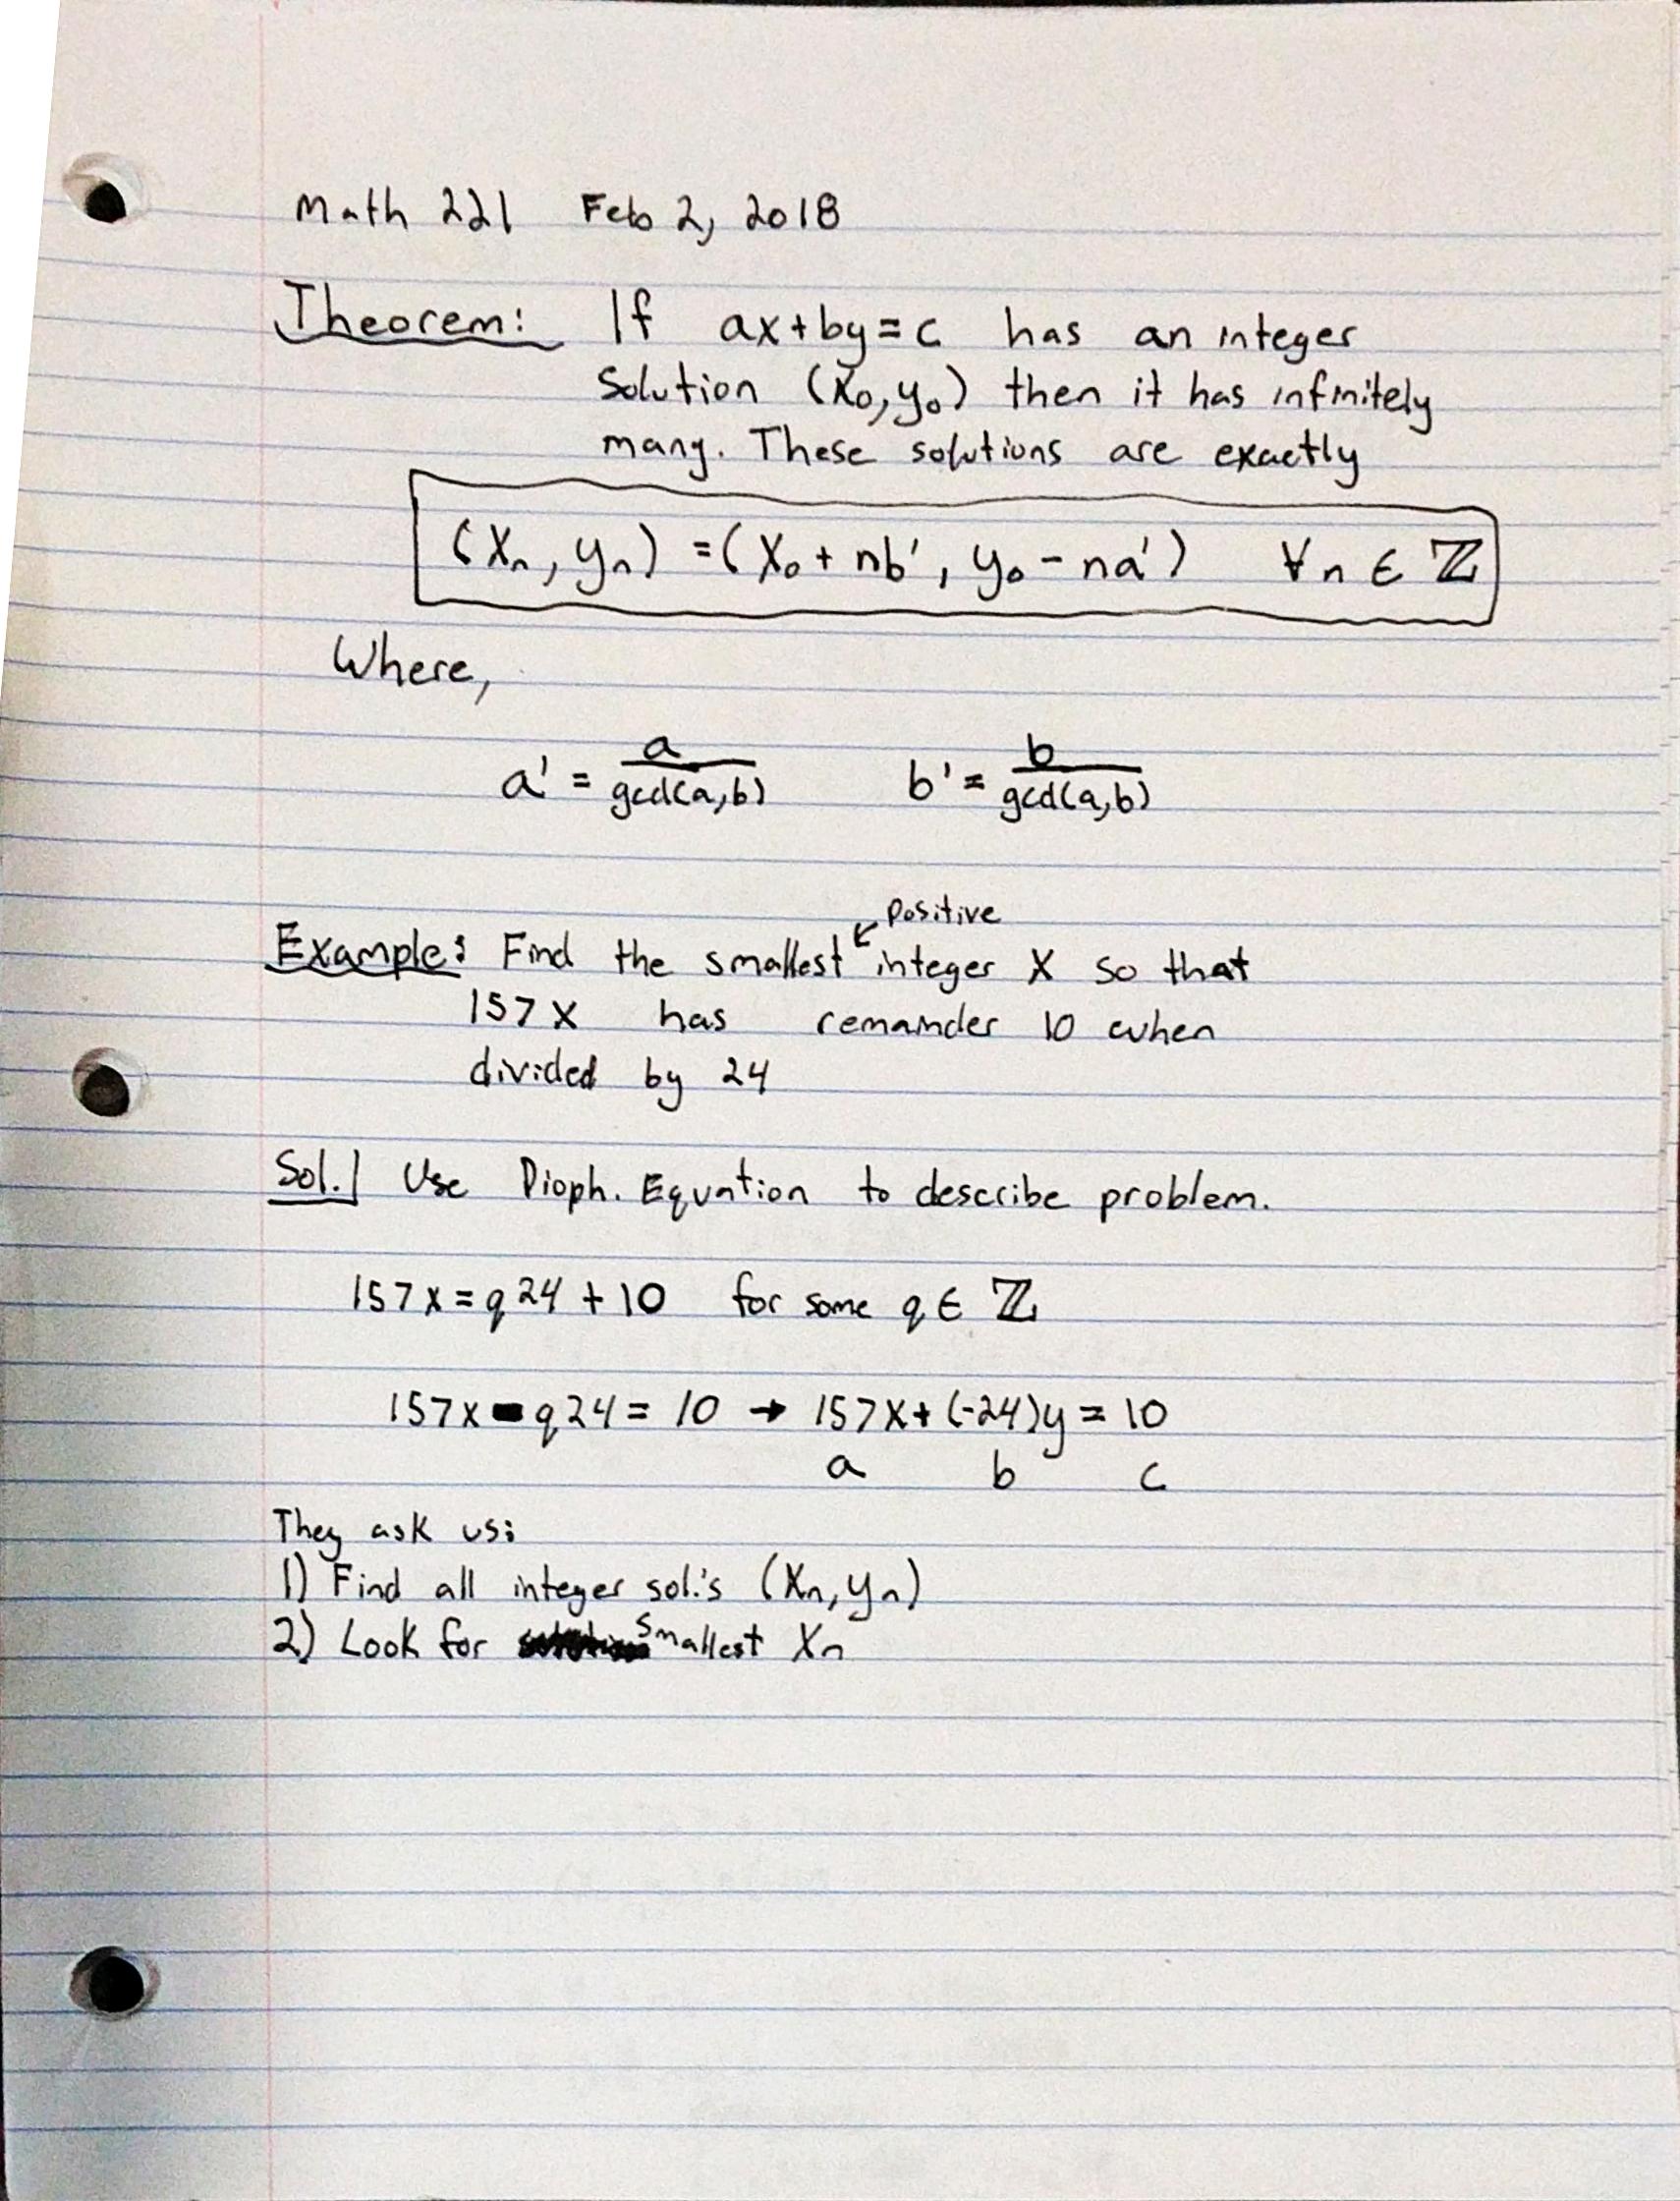 Math 221 Feb 2, 2018
Theorem: If ax+by=c has an integer
Solution (x₀,y₀) then it has infinitely
many. These solutions are exactly
(xₙ, yₙ) = (x₀ + nb', y₀ - na') ∀n ∈ ℤ
Where,
a' = a/gcd(a,b) b' = b/gcd(a,b)
positive
Example: Find the smallest ↙ integer x so that
157x has remainder 10 when
divided by 24
Sol.| Use Dioph. Equation to describe problem.
157x = q24 + 10 for some q ∈ ℤ
157x - q24 = 10 → 157x + (-24)y = 10
a b c
They ask us:
1) Find all integer sol.'s (xₙ, yₙ)
2) Look for smallest xₙ